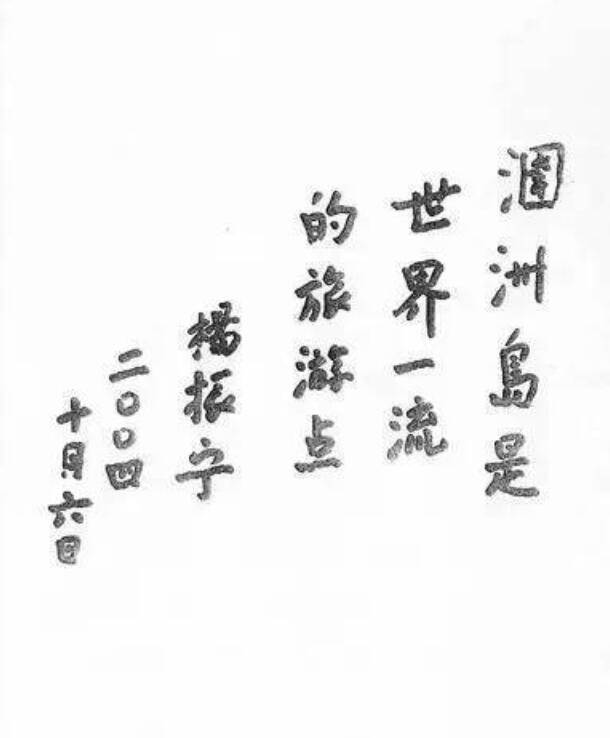 涠洲島是
世界一流
的旅游点
楊振宁
二〇〇四
十月六日